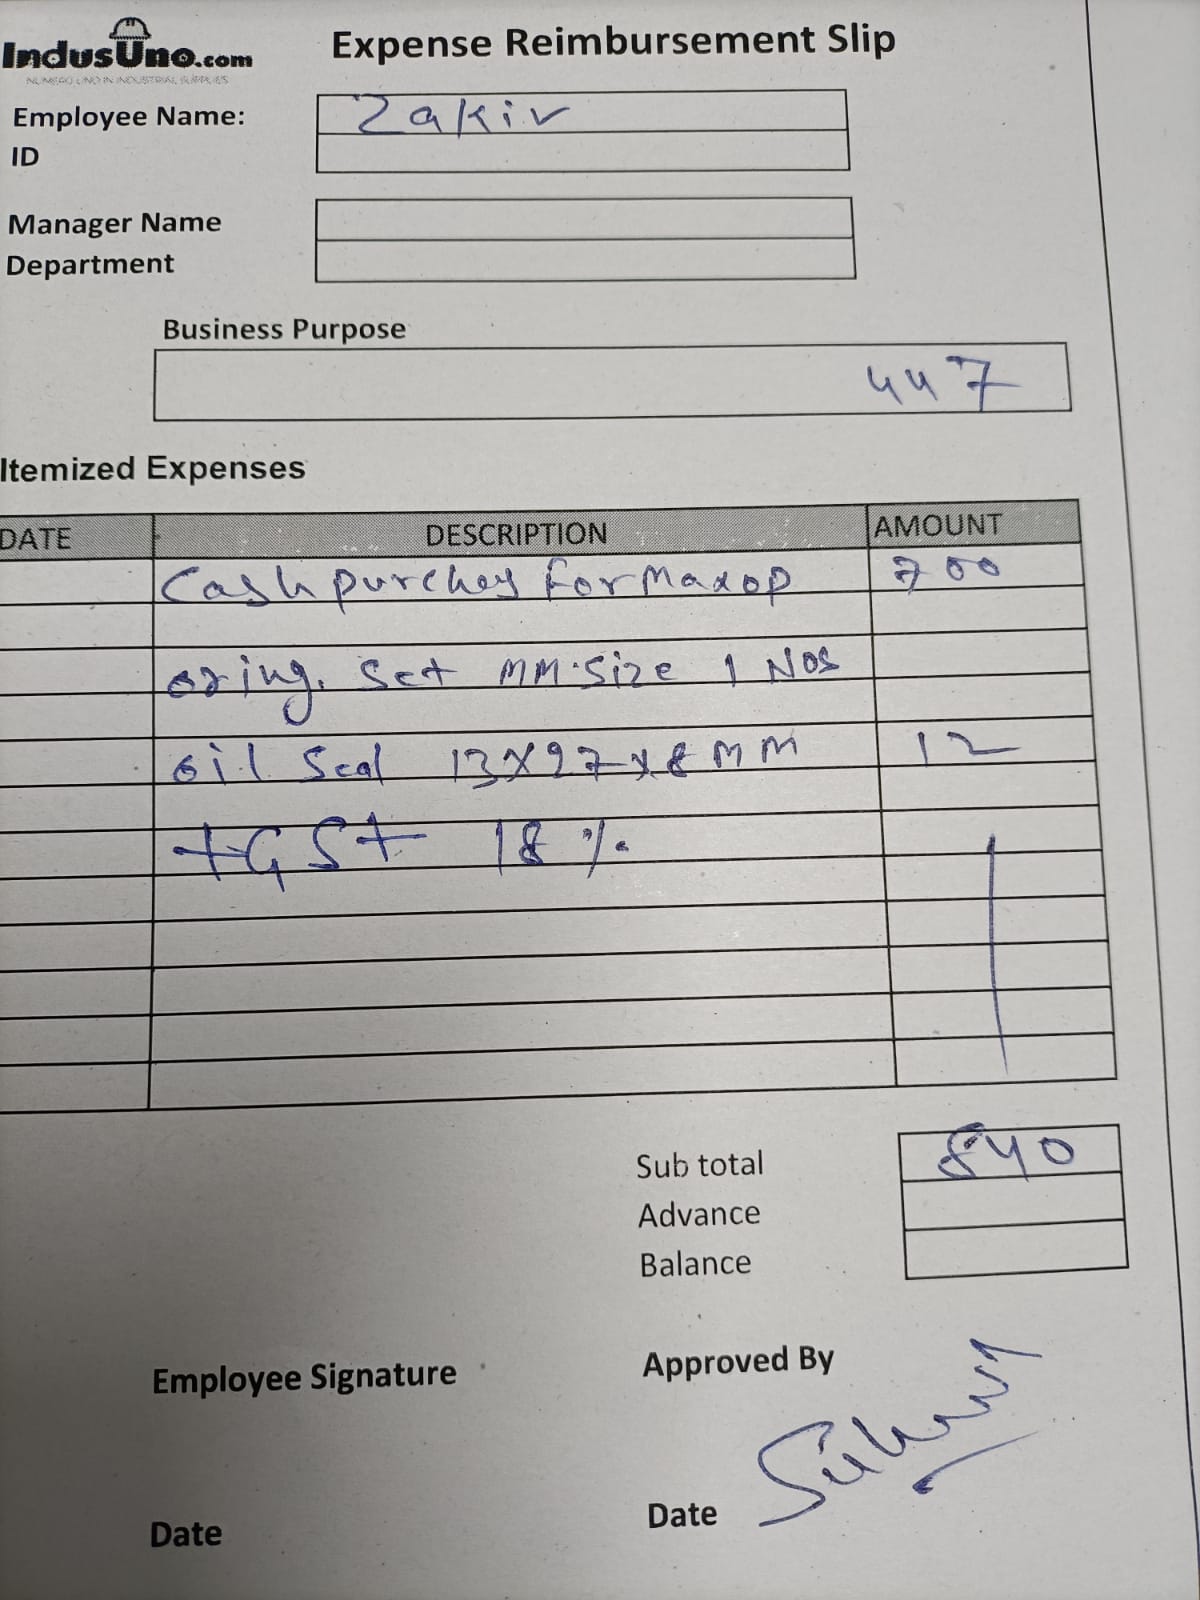 IndusUno.com
NUMERO UNO IN INDUSTRIAL SUPPLIES
Expense Reimbursement Slip
Employee Name: Zakir
ID
Manager Name
Department
Business Purpose
447
Itemized Expenses
DATE DESCRIPTION AMOUNT
Cash purchey for Maxop 700
oring. Set MM.Size 1 Nos
oil Seal 13X27X8 MM 12
+GSt 18 %.
Sub total 840
Advance
Balance
Employee Signature Approved By
Date Date